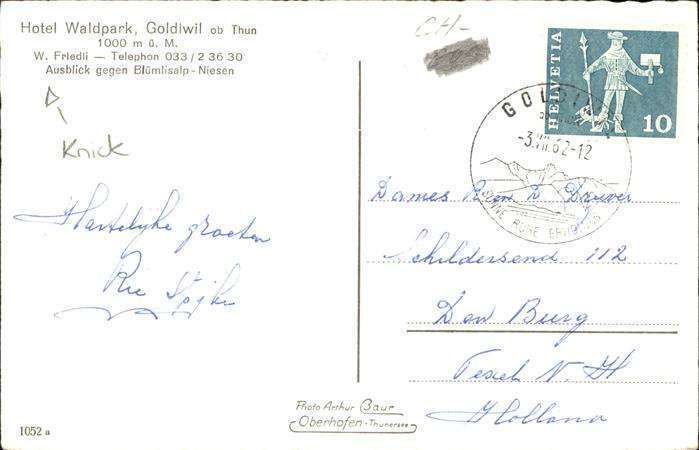 Hotel Waldpark, Goldiwil ob Thun
1000 m ü. M.
W. Friedli — Telephon 033/2 36 30
Ausblick gegen Blümlisalp-Niesen
Knick
CH-
HELVETIA
10
GOLDIWIL
-3.VII.62-12
SONNE RUHE ERHOLUNG
Hartelijke groeten
Rie
Dames R en D Druver
Schildersend 112
Den Burg
Texel N.H
Holland
Photo Arthur Baur
Oberhofen-Thunersee
1052 a